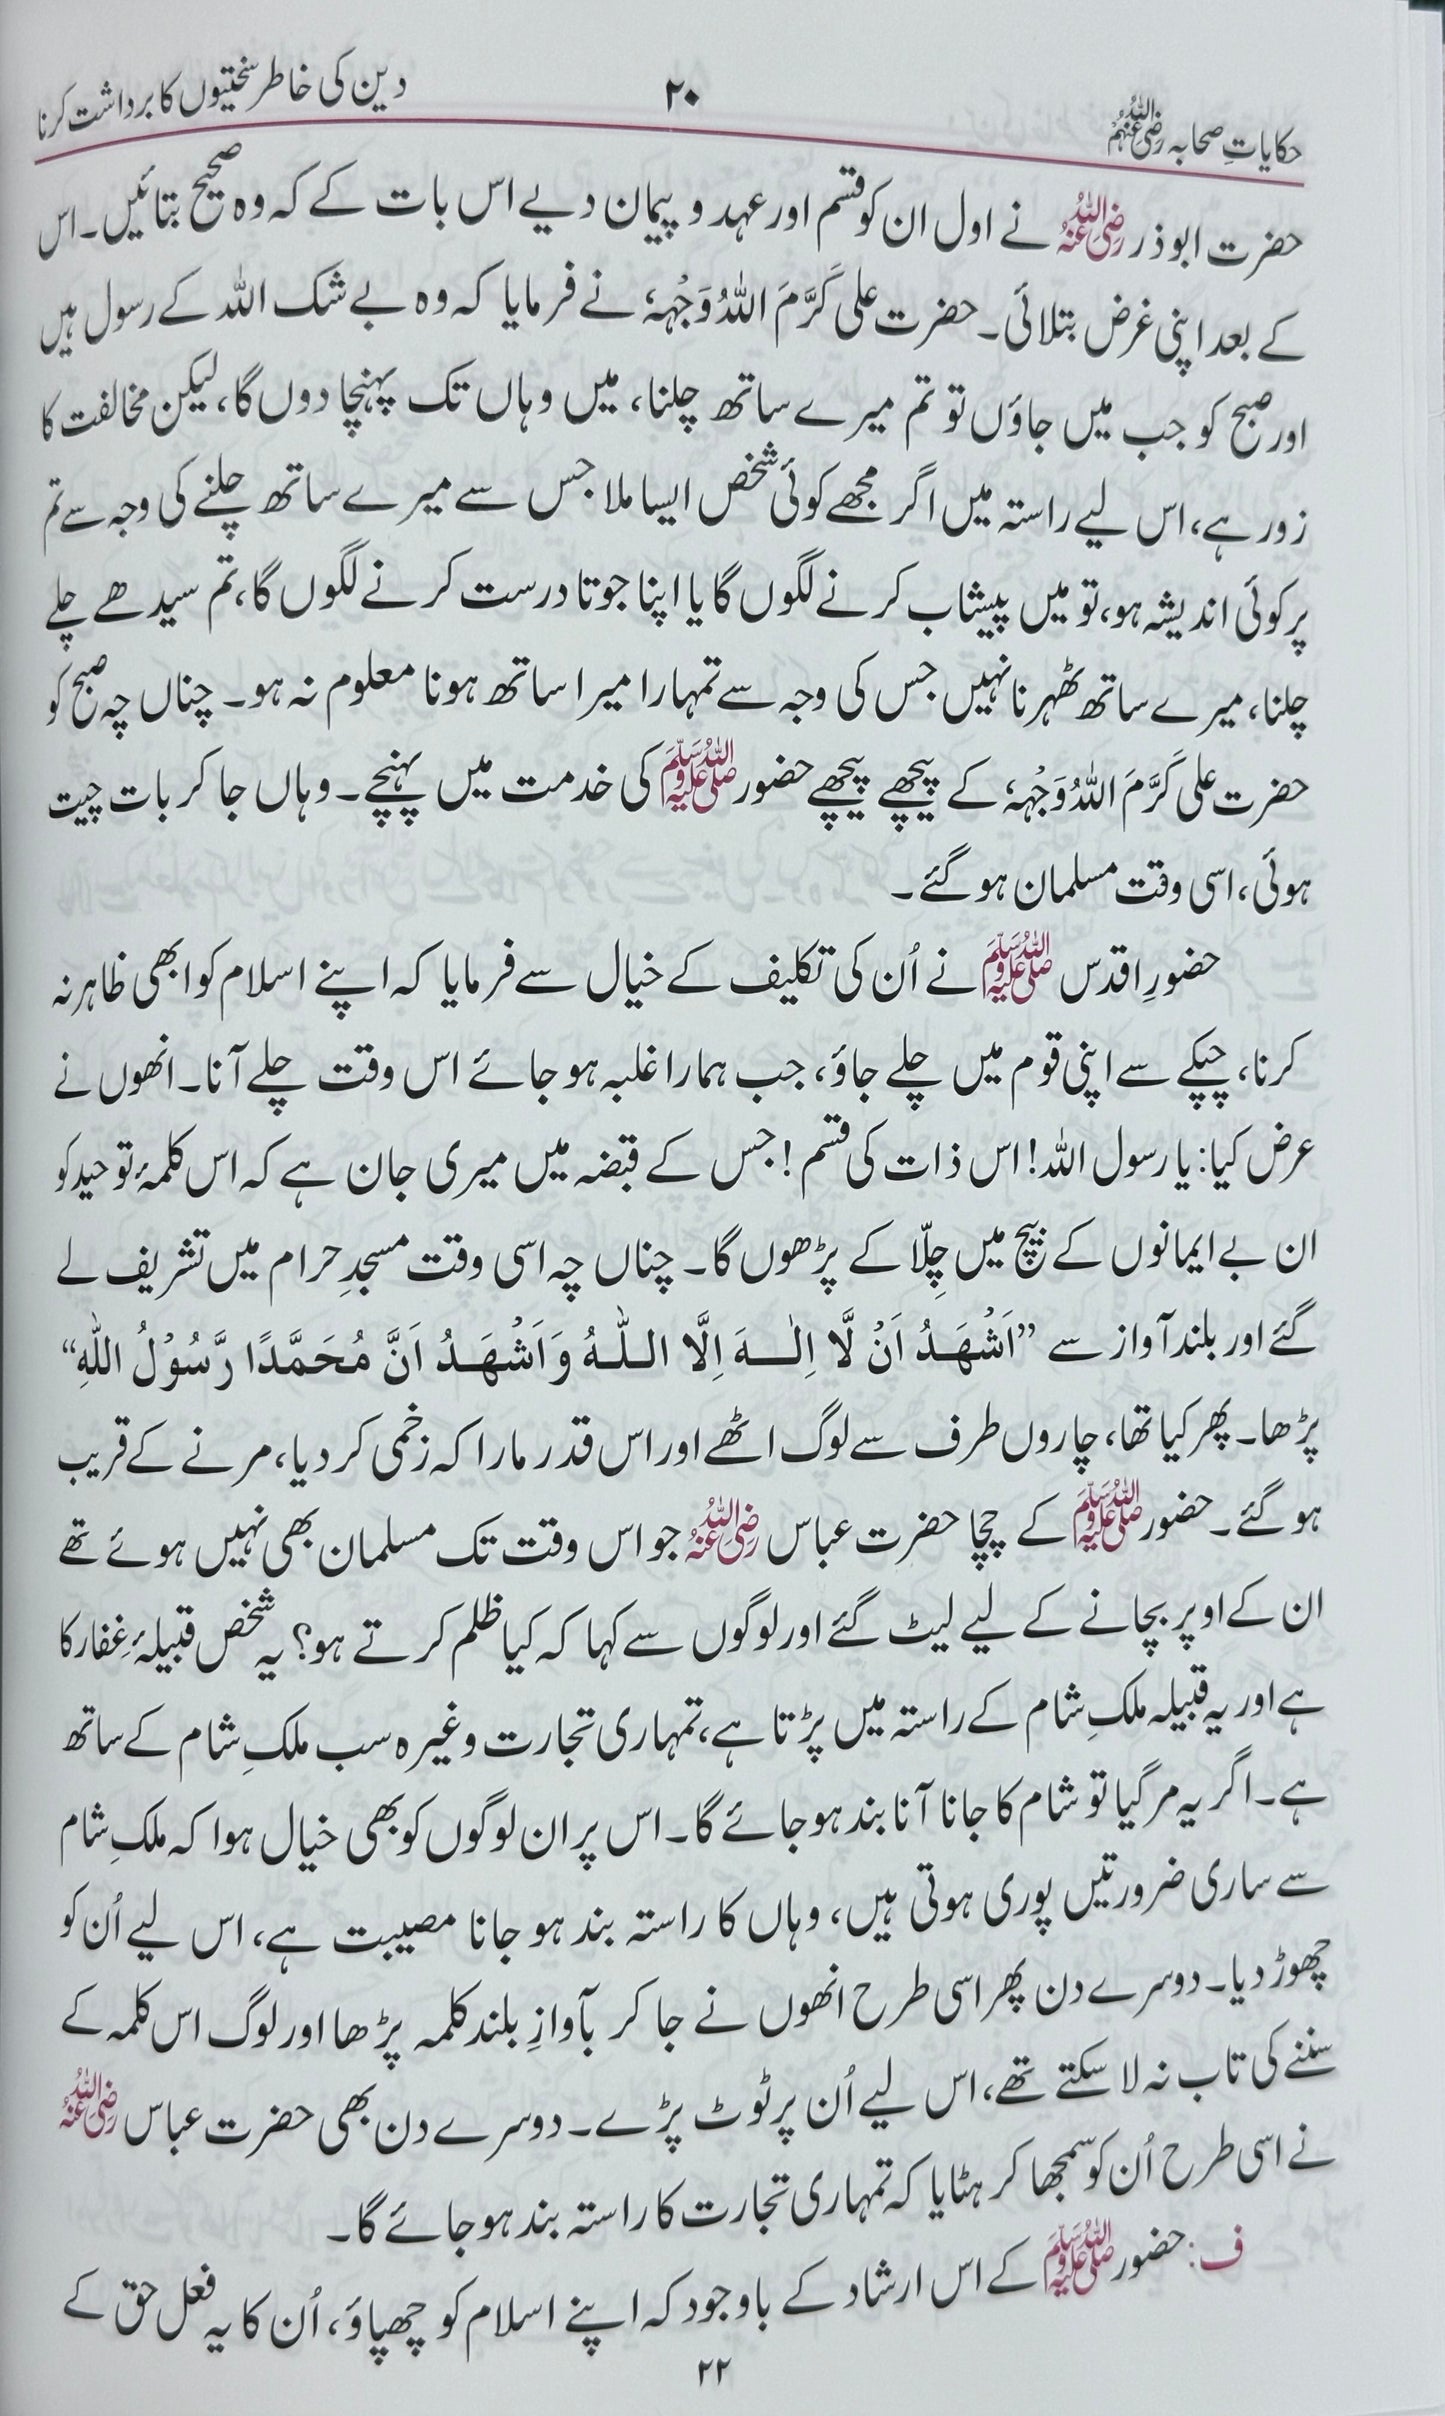 حکایاتِ صحابہ رضی اللہ عنہم ۲۰ دین کی خاطر سختیوں کا برداشت کرنا
حضرت ابوذر رضی اللہ عنہ نے اول ان کو قسم اور عہد و پیمان دیے اس بات کے کہ وہ صحیح بتائیں۔ اس
کے بعد اپنی غرض بتلائی۔ حضرت علی کَرَّمَ اللہُ وَجْہَہٗ نے فرمایا کہ وہ بے شک اللہ کے رسول ہیں
اور صبح کو جب میں جاؤں تو تم میرے ساتھ چلنا، میں وہاں تک پہنچا دوں گا، لیکن مخالفت کا
زور ہے، اس لیے راستہ میں اگر مجھے کوئی شخص ایسا ملا جس سے میرے ساتھ چلنے کی وجہ سے تم
پر کوئی اندیشہ ہو، تو میں پیشاب کرنے لگوں گا یا اپنا جوتا درست کرنے لگوں گا، تم سیدھے چلے
چلنا، میرے ساتھ ٹھہرنا نہیں جس کی وجہ سے تمہارا میرا ساتھ ہونا معلوم نہ ہو۔ چناں چہ صبح کو
حضرت علی کَرَّمَ اللہُ وَجْہَہٗ کے پیچھے پیچھے حضور ﷺ کی خدمت میں پہنچے۔ وہاں جا کر بات چیت
ہوئی، اسی وقت مسلمان ہو گئے۔
حضورِ اقدس ﷺ نے اُن کی تکلیف کے خیال سے فرمایا کہ اپنے اسلام کو ابھی ظاہر نہ
کرنا، چپکے سے اپنی قوم میں چلے جاؤ، جب ہمارا غلبہ ہو جائے اس وقت چلے آنا۔ انھوں نے
عرض کیا: یا رسول اللہ! اس ذات کی قسم! جس کے قبضہ میں میری جان ہے کہ اس کلمۂ توحید کو
ان بے ایمانوں کے بیچ میں چِلّا کے پڑھوں گا۔ چناں چہ اسی وقت مسجدِ حرام میں تشریف لے
گئے اور بلند آواز سے ”اَشْھَدُ اَنْ لَّا اِلٰہَ اِلَّا اللّٰہُ وَاَشْھَدُ اَنَّ مُحَمَّدًا رَّسُوْلُ اللّٰہِ“
پڑھا۔ پھر کیا تھا، چاروں طرف سے لوگ اٹھے اور اس قدر مارا کہ زخمی کر دیا، مرنے کے قریب
ہو گئے۔ حضور ﷺ کے چچا حضرت عباس رضی اللہ عنہ جو اس وقت تک مسلمان بھی نہیں ہوئے تھے
ان کے اوپر بچانے کے لیے لیٹ گئے اور لوگوں سے کہا کہ کیا ظلم کرتے ہو؟ یہ شخص قبیلۂ غِفار کا
ہے اور یہ قبیلہ ملکِ شام کے راستہ میں پڑتا ہے، تمہاری تجارت وغیرہ سب ملکِ شام کے ساتھ
ہے۔ اگر یہ مر گیا تو شام کا جانا آنا بند ہو جائے گا۔ اس پر ان لوگوں کو بھی خیال ہوا کہ ملکِ شام
سے ساری ضرورتیں پوری ہوتی ہیں، وہاں کا راستہ بند ہو جانا مصیبت ہے، اس لیے اُن کو
چھوڑ دیا۔ دوسرے دن پھر اسی طرح انھوں نے جا کر بآوازِ بلند کلمہ پڑھا اور لوگ اس کلمہ کے
سننے کی تاب نہ لا سکتے تھے، اس لیے اُن پر ٹوٹ پڑے۔ دوسرے دن بھی حضرت عباس رضی اللہ عنہ
نے اسی طرح اُن کو سمجھا کر ہٹایا کہ تمہاری تجارت کا راستہ بند ہو جائے گا۔
ف: حضور ﷺ کے اس ارشاد کے باوجود کہ اپنے اسلام کو چھپاؤ، اُن کا یہ فعل حق کے
۲۲